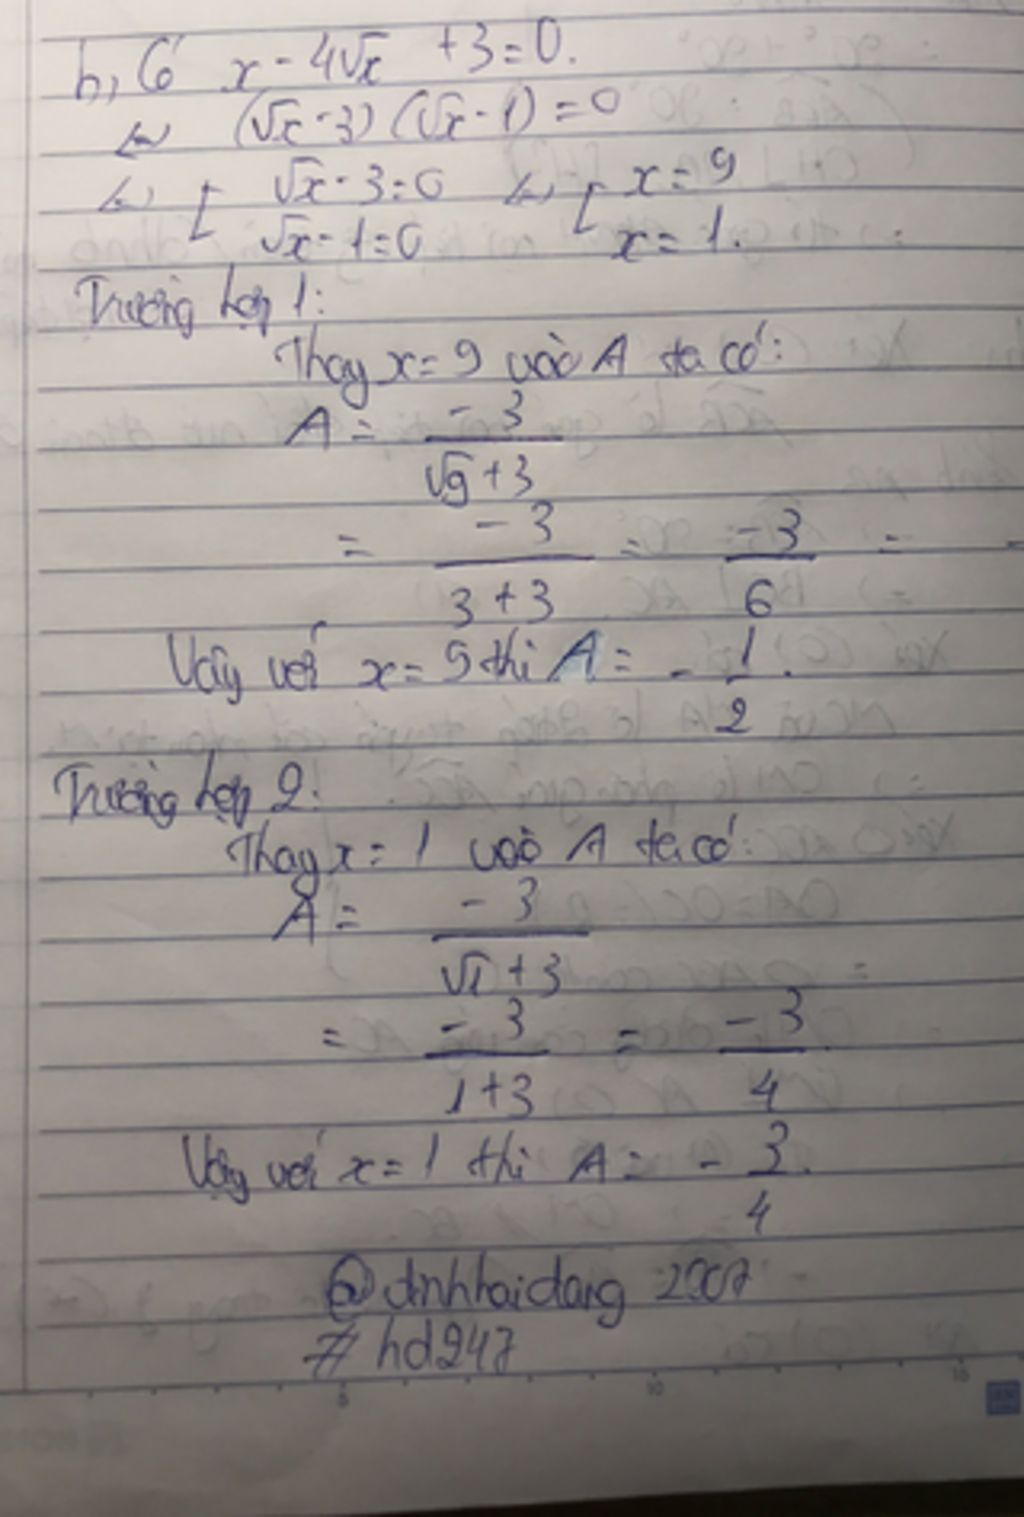 b, Có x - 4√x + 3 = 0.
⇔ (√x - 3) (√x - 1) = 0
⇔ [ √x - 3 = 0 ⇔ [ x = 9
√x - 1 = 0 x = 1.
Trường hợp 1:
Thay x = 9 vào A ta có:
A = -3
√9 + 3
= -3 / 3 + 3 = -3 / 6 = -
Vậy với x = 9 thì A = - 1/2.
Trường hợp 2:
Thay x = 1 vào A ta có:
A = -3
√1 + 3
= -3 / 1 + 3 = -3 / 4
Vậy với x = 1 thì A = - 3/4.
@dinhhaidang 2007
#hd247
5 10 15